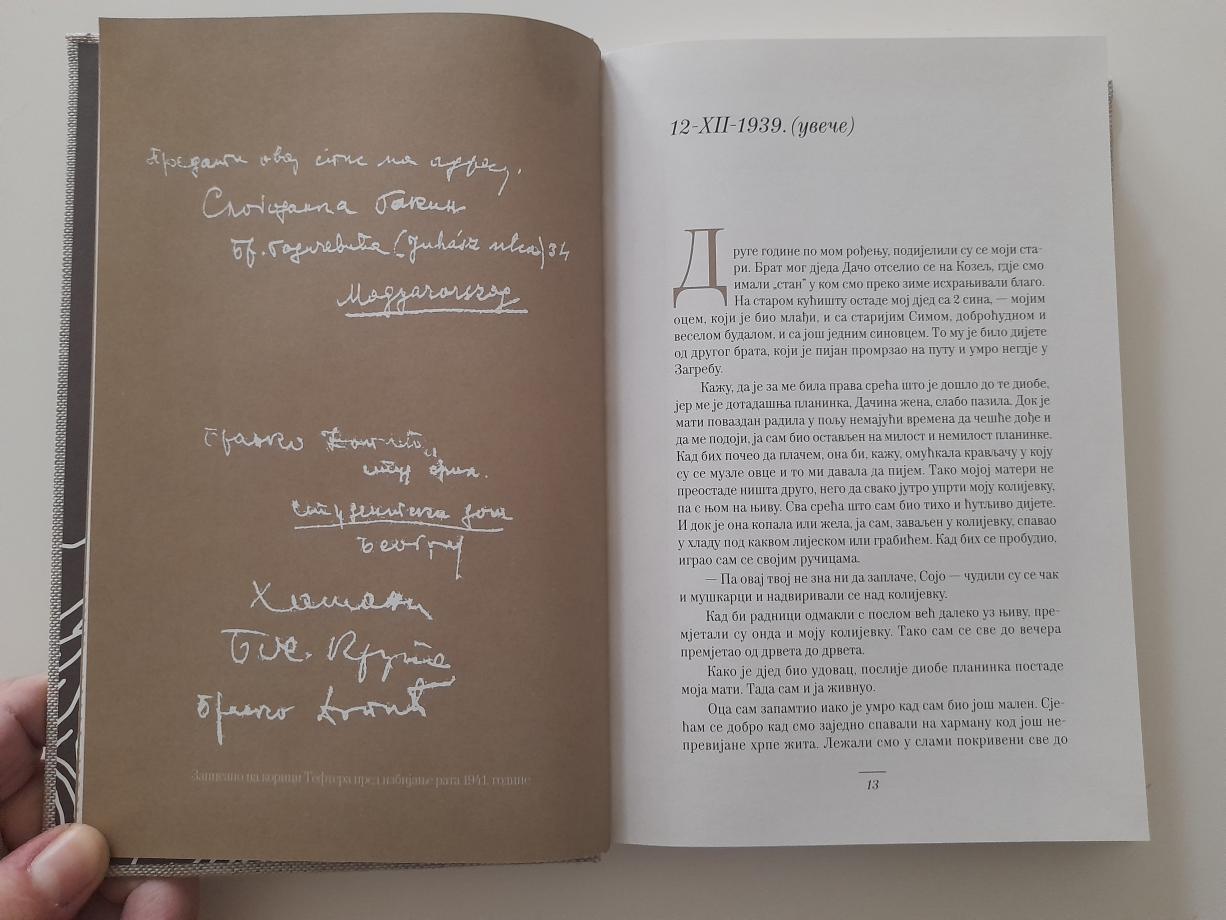 Предати овај спис на адресу.
Стојанка бакин
Бр. (Juhász utca) 34
Бранко Ћопић
студ. фил.
Студентски дом
Београд
Хашани
Бос. Крупа
Бранко Ћопић
Записано на корици Тефтера пред избијање рата 1941. године
12-XII-1939. (увече)
Друге године по мом рођењу, подијелили су се моји ста-
ри. Брат мог дједа Дачо отселио се на Козељ, гдје смо
имали „стан” у ком смо преко зиме исхрањивали благо.
На старом кућишту остаде мој дјед са 2 сина, — мојим
оцем, који је био млађи, и са старијим Симом, доброћудном и
веселом будалом, и са још једним синовцем. То му је било дијете
од другог брата, који је пијан промрзао на путу и умро негдје у
Загребу.
Кажу, да је за ме била права срећа што је дошло до те диобе,
јер ме је дотадашња планинка, Дачина жена, слабо пазила. Док је
мати поваздан радила у пољу немајући времена да чешће дође и
да ме подоји, ја сам био остављен на милост и немилост планинке.
Кад бих почео да плачем, она би, кажу, омућкала крављачу у коју
су се музле овце и то ми давала да пијем. Тако мојој матери не
преостаде ништа друго, него да свако јутро упрти моју колијевку,
па с њом на њиву. Сва срећа што сам био тихо и ћутљиво дијете.
И док је она копала или жела, ја сам, заваљен у колијевку, спавао
у хладу под каквом лијеском или грабићем. Кад бих се пробудио,
играо сам се својим ручицама.
— Па овај твој не зна ни да заплаче, Сојо — чудили су се чак
и мушкарци и надвиривали се над колијевку.
Кад би радници одмакли с послом већ далеко уз њиву, пре-
мјетали су онда и моју колијевку. Тако сам се све до вечера
премјетао од дрвета до дрвета.
Како је дјед био удовац, послије диобе планинка постаде
моја мати. Тада сам и ја живнуо.
Оца сам запамтио иако је умро кад сам био још мален. Сје-
ћам се добро кад смо заједно спавали на харману код још не-
превијане хрпе жита. Лежали смо у слами покривени све до
13